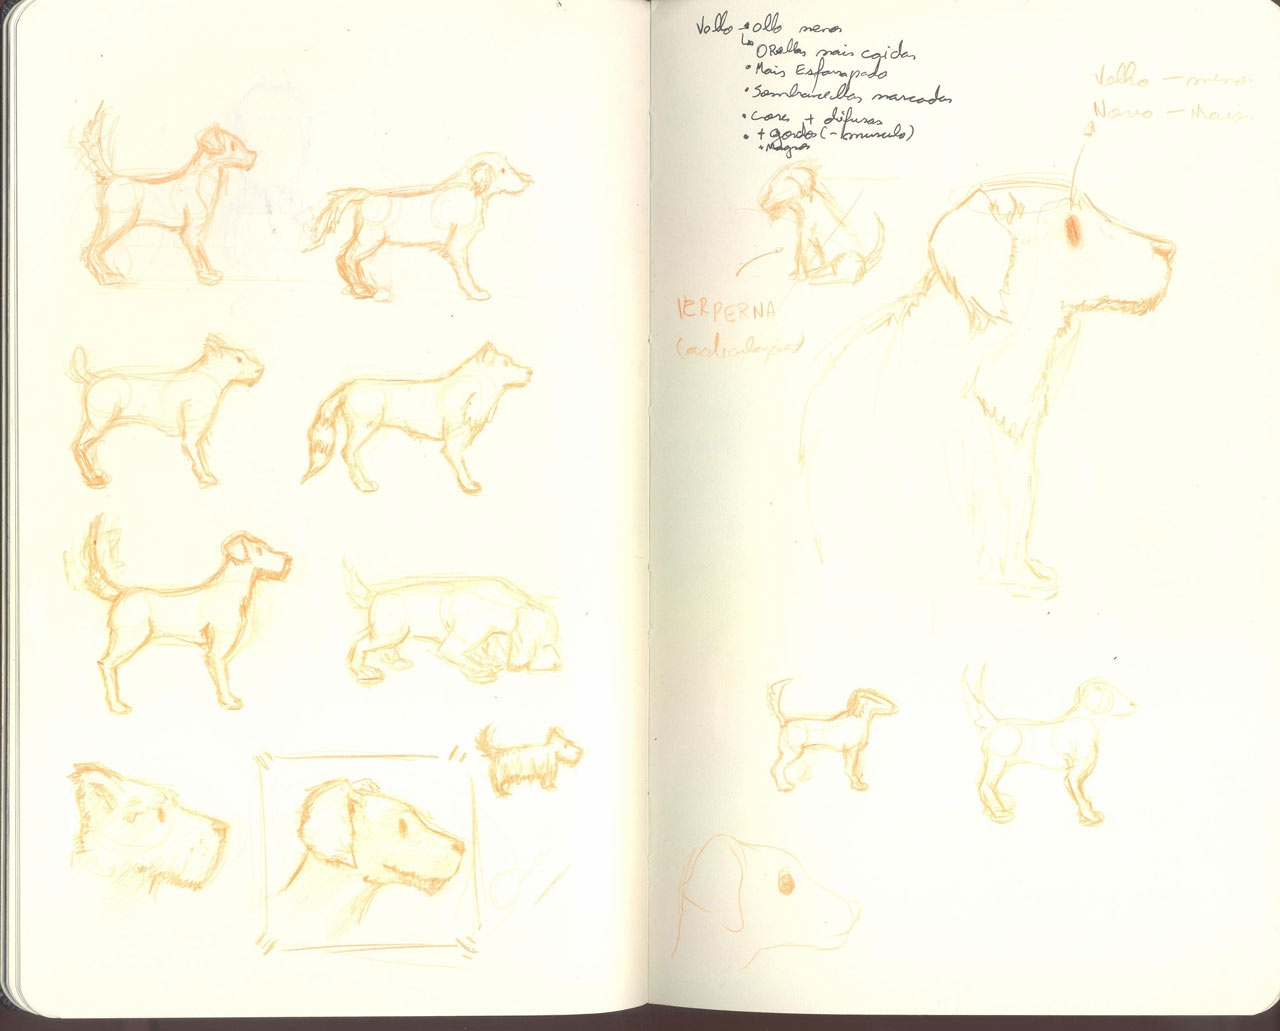 Vello → Ollo menor
↳ ORellas mais caidas
• Mais Esfarrapado
• Sombrancellas marcadas
• Cores + difusas
• + gordo (- musculo)
+ Magro
Vello — menor
Novo — Maior
VER PERNA
(articulaçoes)